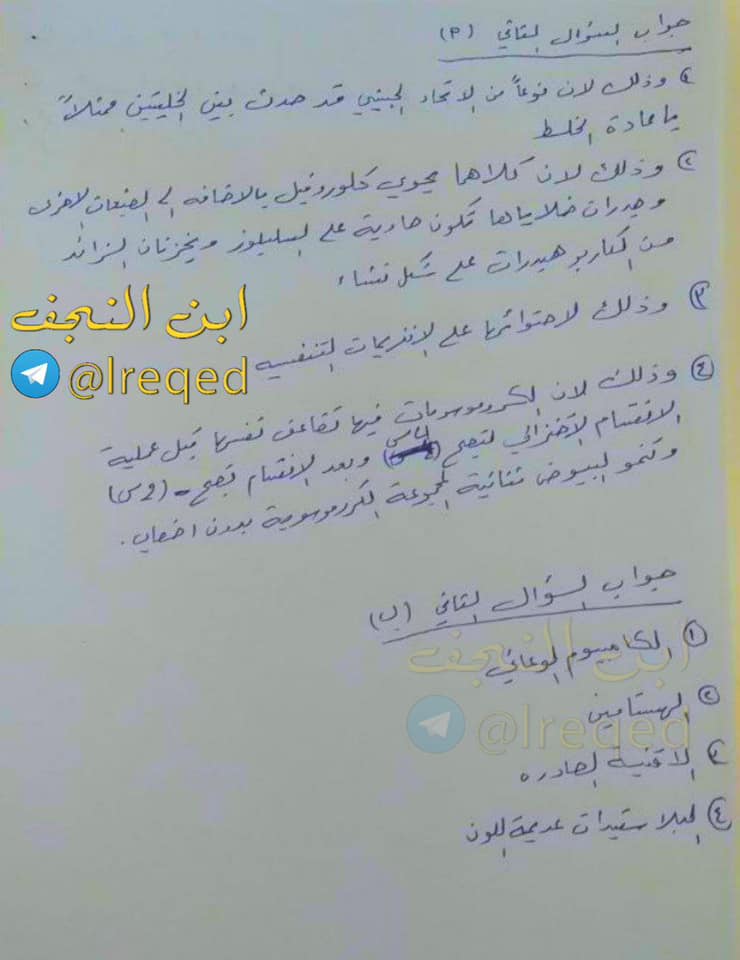 جواب السؤال الثاني (P)
١ وذلك لان نوعاً من الاتحاد الجنيني قد حدث بين الخليتين ممثلاً
باعادة الخلط
٢ وذلك لان كلاهما يحوي كلوروفيل بالاضافه الى الصبغات الاخرى
وجدران خلاياها تكون حاوية على السليلوز ويخزنان الزائد
من الكاربوهيدرات على شكل نشاء
ابن النجف
@lreqed
٣ وذلك لاحتوائها على الانزيمات التنفسيه
٤ وذلك لان الكروموسومات فيها تضاعف نفسها قبل عملية
الانقسام الاختزالي لتصبح (٤س) وبعد الانقسام تصبح (٢س)
وتنمو البيوض ثنائية المجموعة الكروموسومية بدون اخصاب.
جواب السؤال الثاني (ب)
١ الكامبيوم الوعائي
ابن النجف
٢ الهستامين
@lreqed
٣ الاقنية الصادره
٤ البلاستيدات عديمة اللون